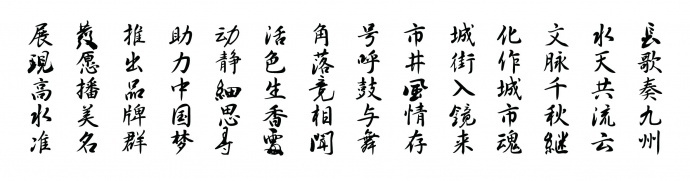 长歌奏九州
水天共流云
文脉千秋継
化作城市魂
城街入镜来
市井風情存
号呼鼓与舞
角落竞相闻
活色生香
动静細思寻
助力中国梦
推出品牌群
發愿播美名
展現高水准